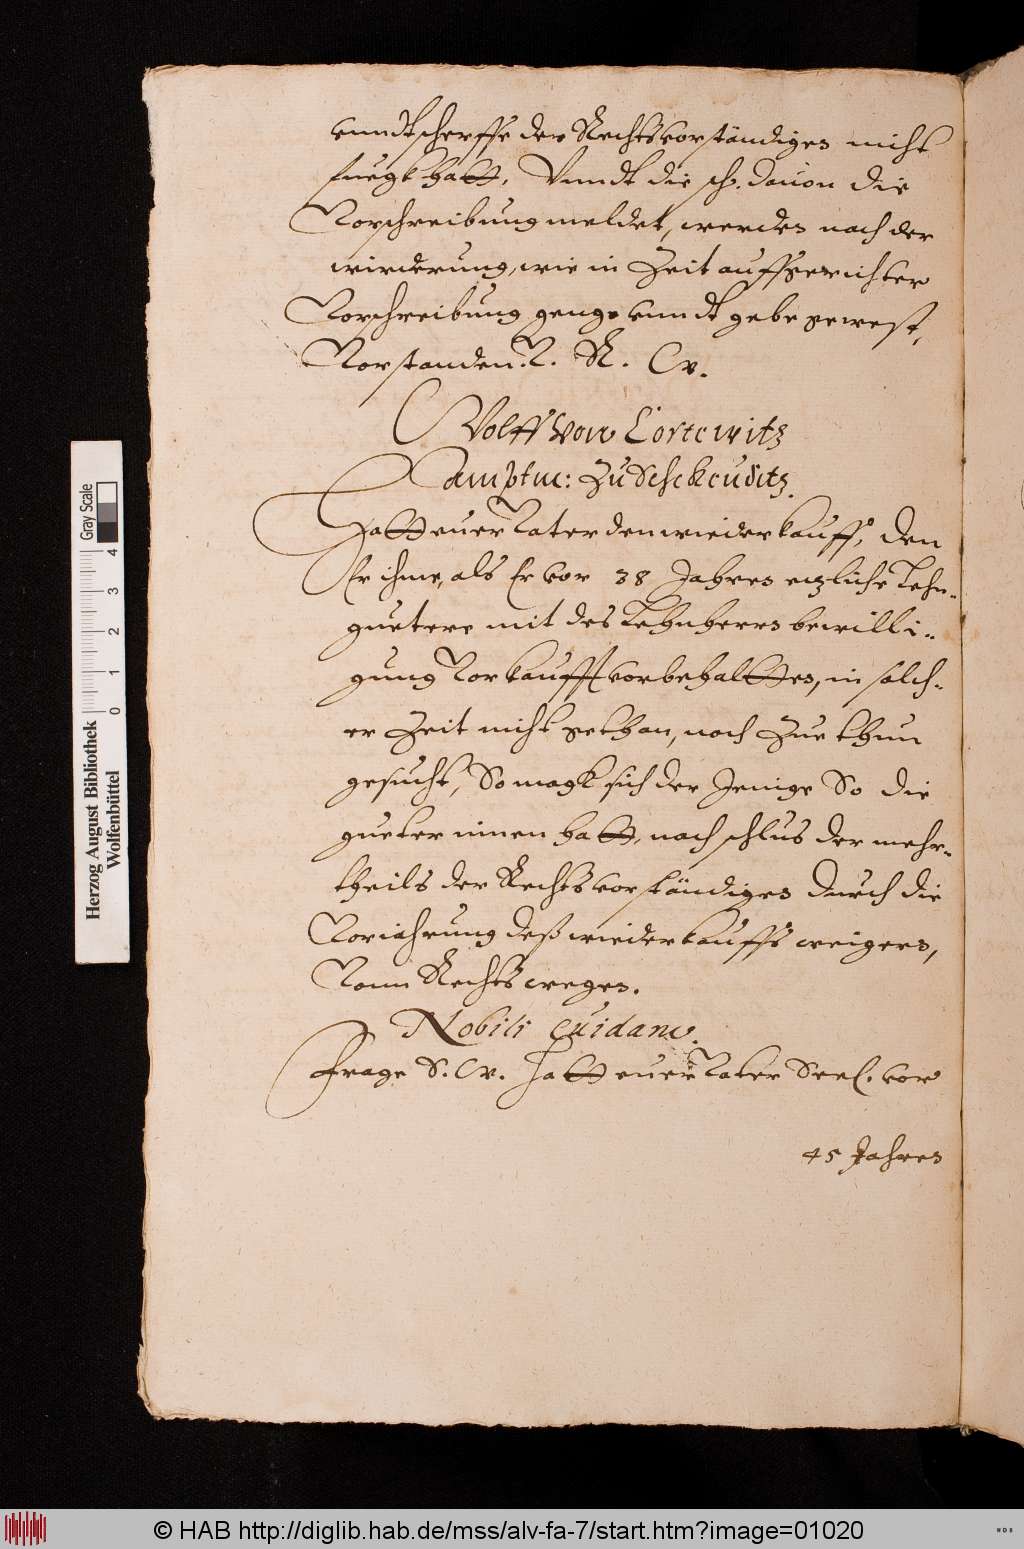 vnndt scherffe der Rechtsvorständigen nicht
fuegk hatt, Vnndt die ß. dauon die
Vorschreibung meldet, werden nach der
wirderung, wie in Zeit auffgerichter
Vorschreibung genge vnndt gebe gewest,
Vorstanden. V. R. W.
Wolff von Lostewitz
Hauptm: Zu Schckeuditz.
Hatt euer Vater den wiederkauff, den
Er ihme, als Er vor 38 Jahren etzliche Lehn-
guetere mit des Lehnherrn bewilli-
gung Vorkaufft vorbehaltten, in solch-
er Zeit nicht gethan, noch Zue thun
gesucht, So magk sich der Jenige So die
gueter innen hatt, nach schlus der mehr-
theils der Rechtsvorständigen durch die
Voriahrung deß wiederkauffs weigern,
Vonn Rechts wegen.
Nobili cuidam.
Frage S. W. Hatt euer Vater Seel. vor
45 Jahren
Herzog August Bibliothek
Wolfenbüttel
0 1 2 3 4
Gray Scale
© HAB http://diglib.hab.de/mss/alv-fa-7/start.htm?image=01020